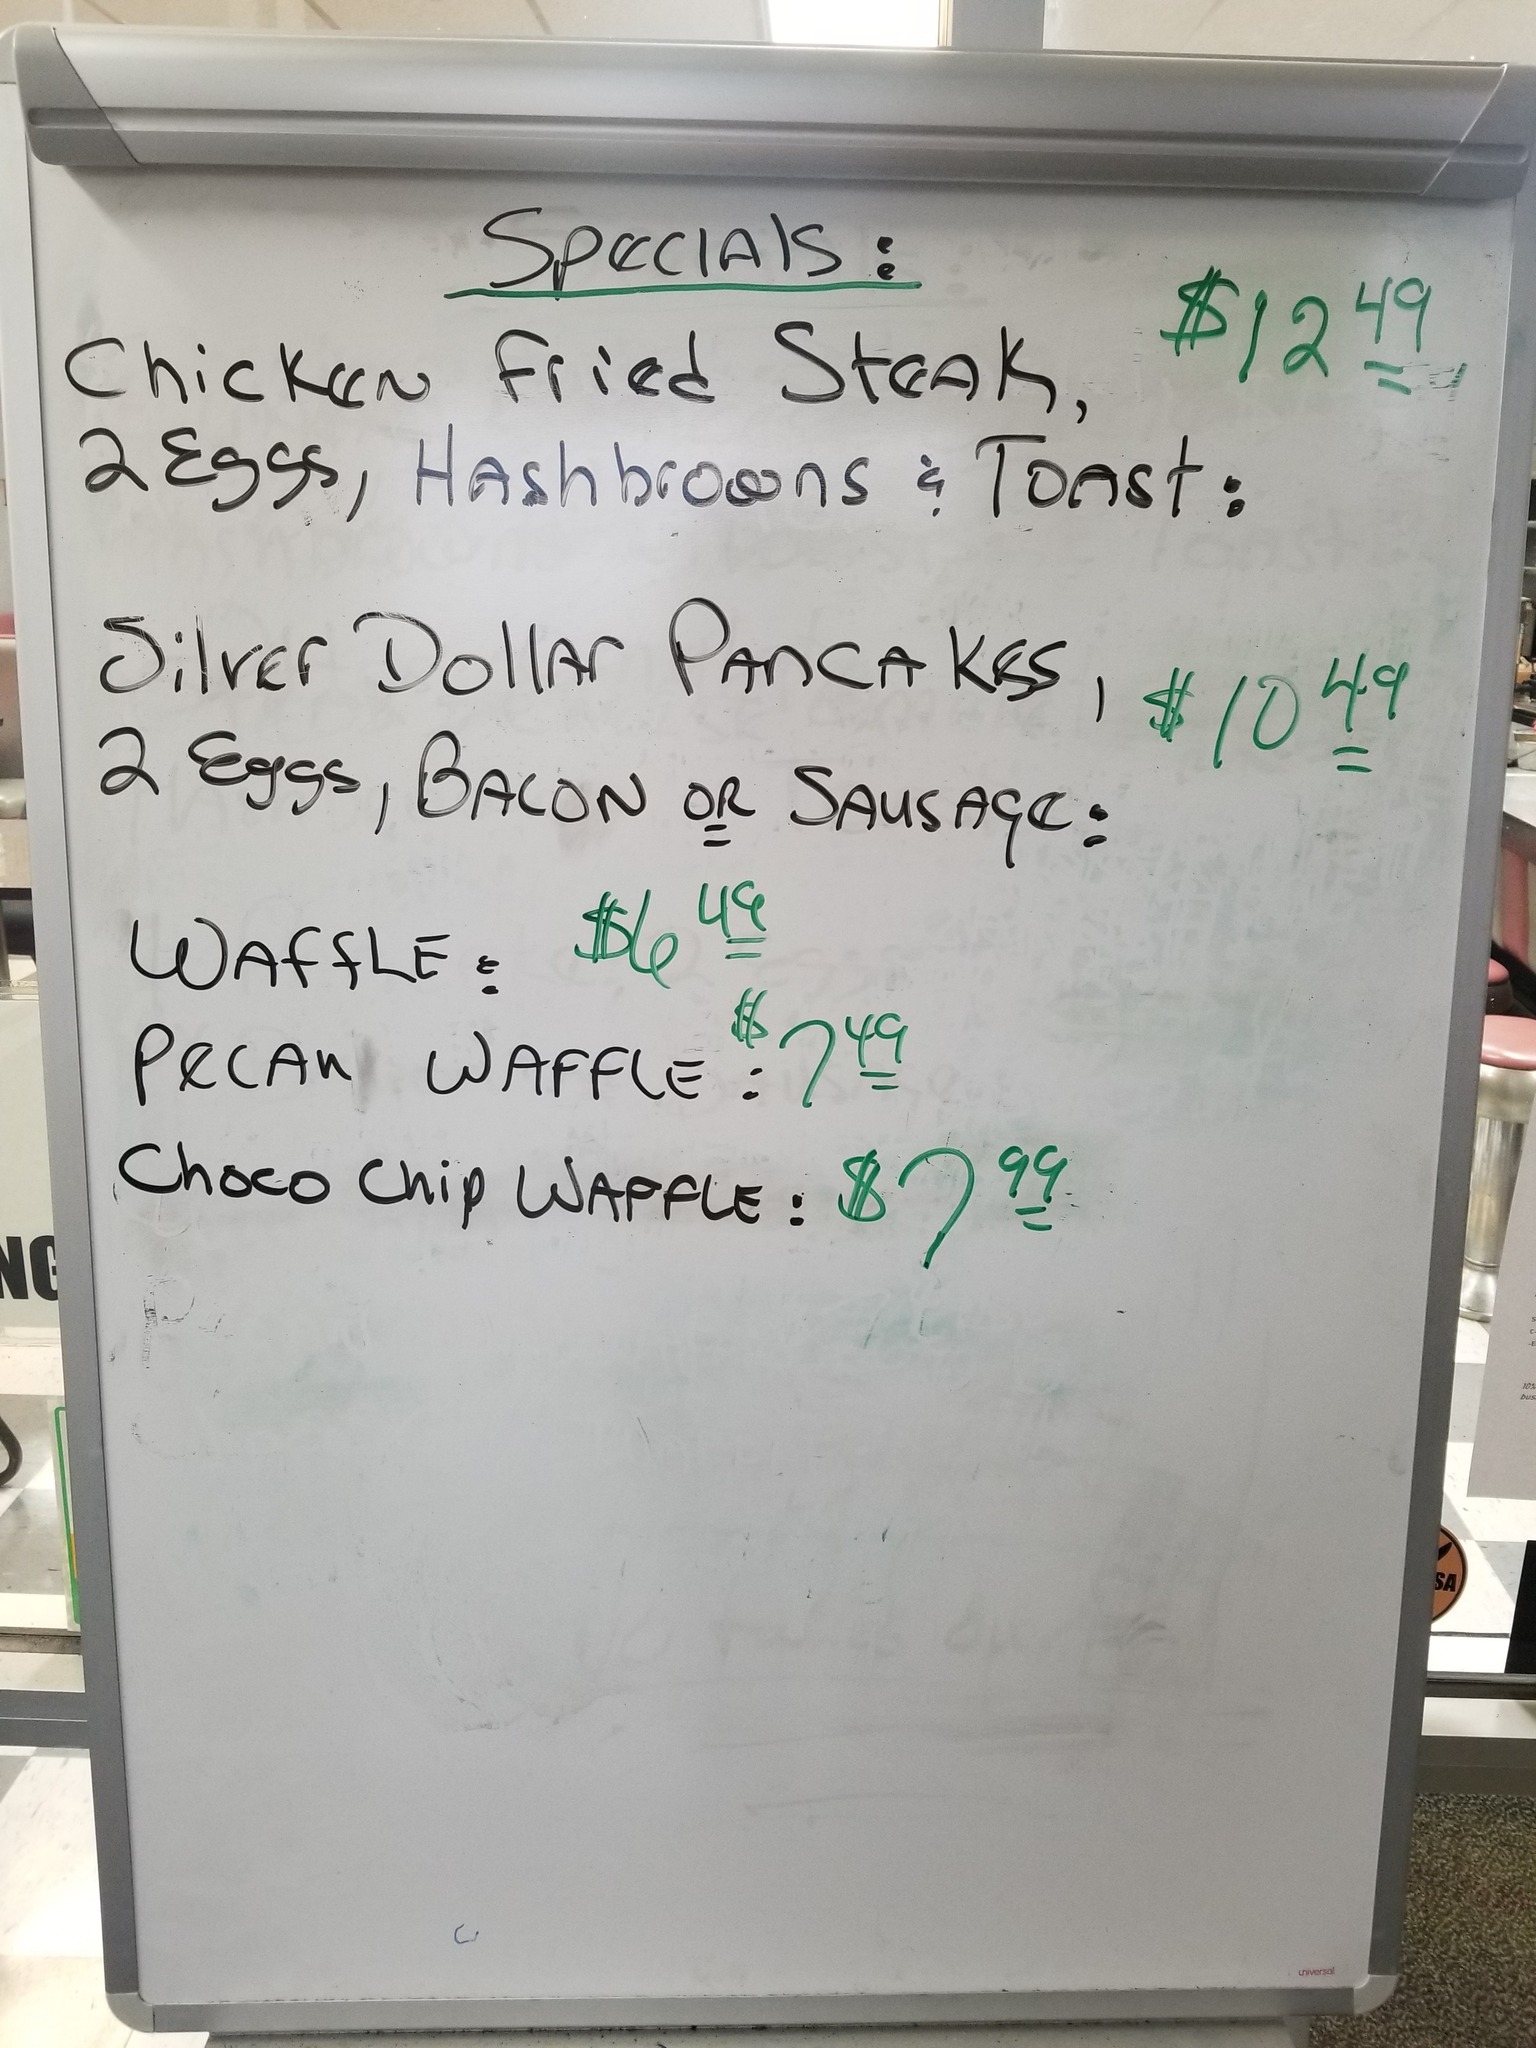 Specials:
$12 49
Chicken Fried Steak,
2 Eggs, Hashbrowns & Toast:
Silver Dollar Pancakes, $10 49
2 Eggs, Bacon or Sausage:
Waffle: $6 49
Pecan Waffle: $7 49
Choco Chip Waffle: $7 99
NG
SA
10%
universal